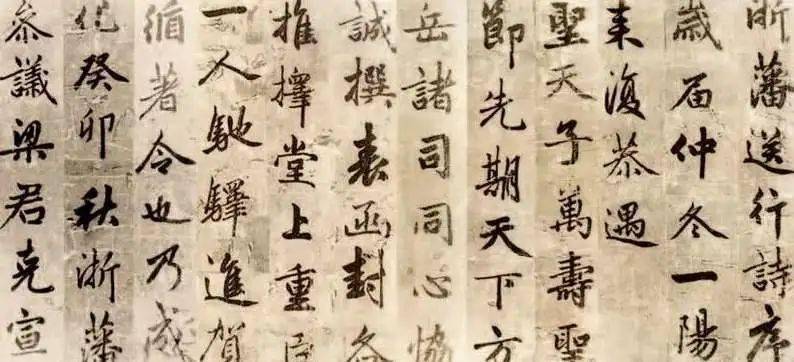 浙藩送行詩序
歲届仲冬一陽
来復恭遇
聖天子萬壽聖
節先期天下方
岳諸司同心恊
誠撰表函封各
推擇堂上重臣
一人馳驛進賀
循著令也乃成
化癸卯秋浙藩
参議梁君克宣